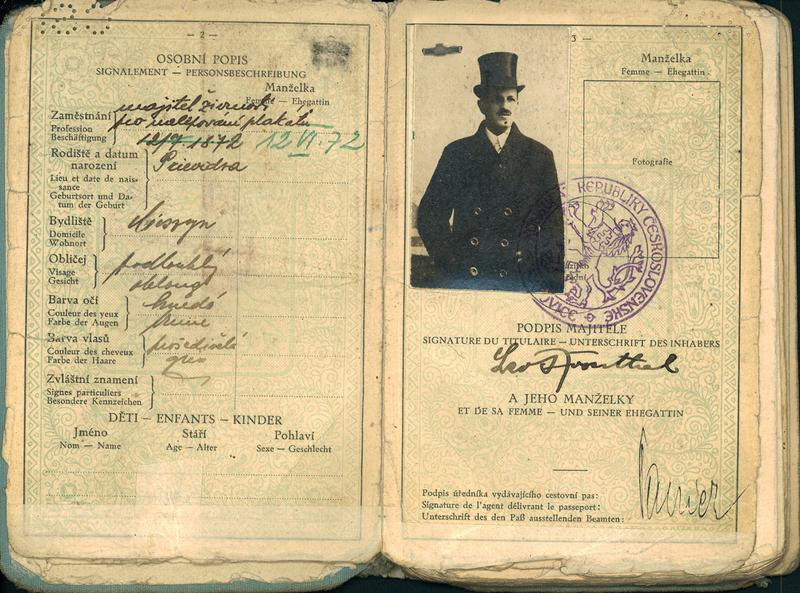 — 2 —
OSOBNÍ POPIS
SIGNALEMENT — PERSONSBESCHREIBUNG
Manželka
Femme — Ehegattin
Zaměstnání
Profession
Beschäftigung
majitel živnosti
pro nalepování plakátů
12/9. 1872 12 VI. 72
Rodiště a datum
narození
Lieu et date de nais-
sance
Geburtsort und Da-
tum der Geburt
Prievidza
Bydliště
Domicile
Wohnort
Obličej
Visage
Gesicht
podlouhlý
oblong
Barva očí
Couleur des yeux
Farbe der Augen
hnědé
Barva vlasů
Couleur des cheveux
Farbe der Haare
prošedivělé
gris
Zvláštní znamení
Signes particuliers
Besondere Kennzeichen
DĚTI — ENFANTS — KINDER
Jméno Stáří Pohlaví
Nom — Name Age — Alter Sexe — Geschlecht
3 —
Manželka
Femme — Ehegattin
Fotografie
REPUBLIKY ČESKOSLOVENSKÉ
PODPIS MAJITELE
SIGNATURE DU TITULAIRE — UNTERSCHRIFT DES INHABERS
Leo Rosenthal
A JEHO MANŽELKY
ET DE SA FEMME — UND SEINER EHEGATTIN
Podpis úředníka vydávajícího cestovní pas:
Signature de l'agent délivrant le passeport:
Unterschrift des den Paß ausstellenden Beamten: